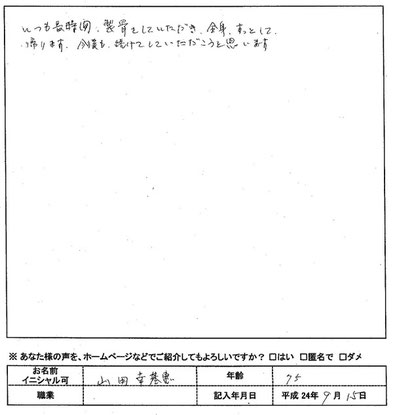 いつも長時間、整骨をしていただき、全身、すっとして
帰ります。今後も、続けてしていただこうと思います
※ あなた様の声を、ホームページなどでご紹介してもよろしいですか? □はい □匿名で □ダメ
お名前 イニシャル可 山田 年齢 75
職業 記入年月日 平成 24年 9月 15日